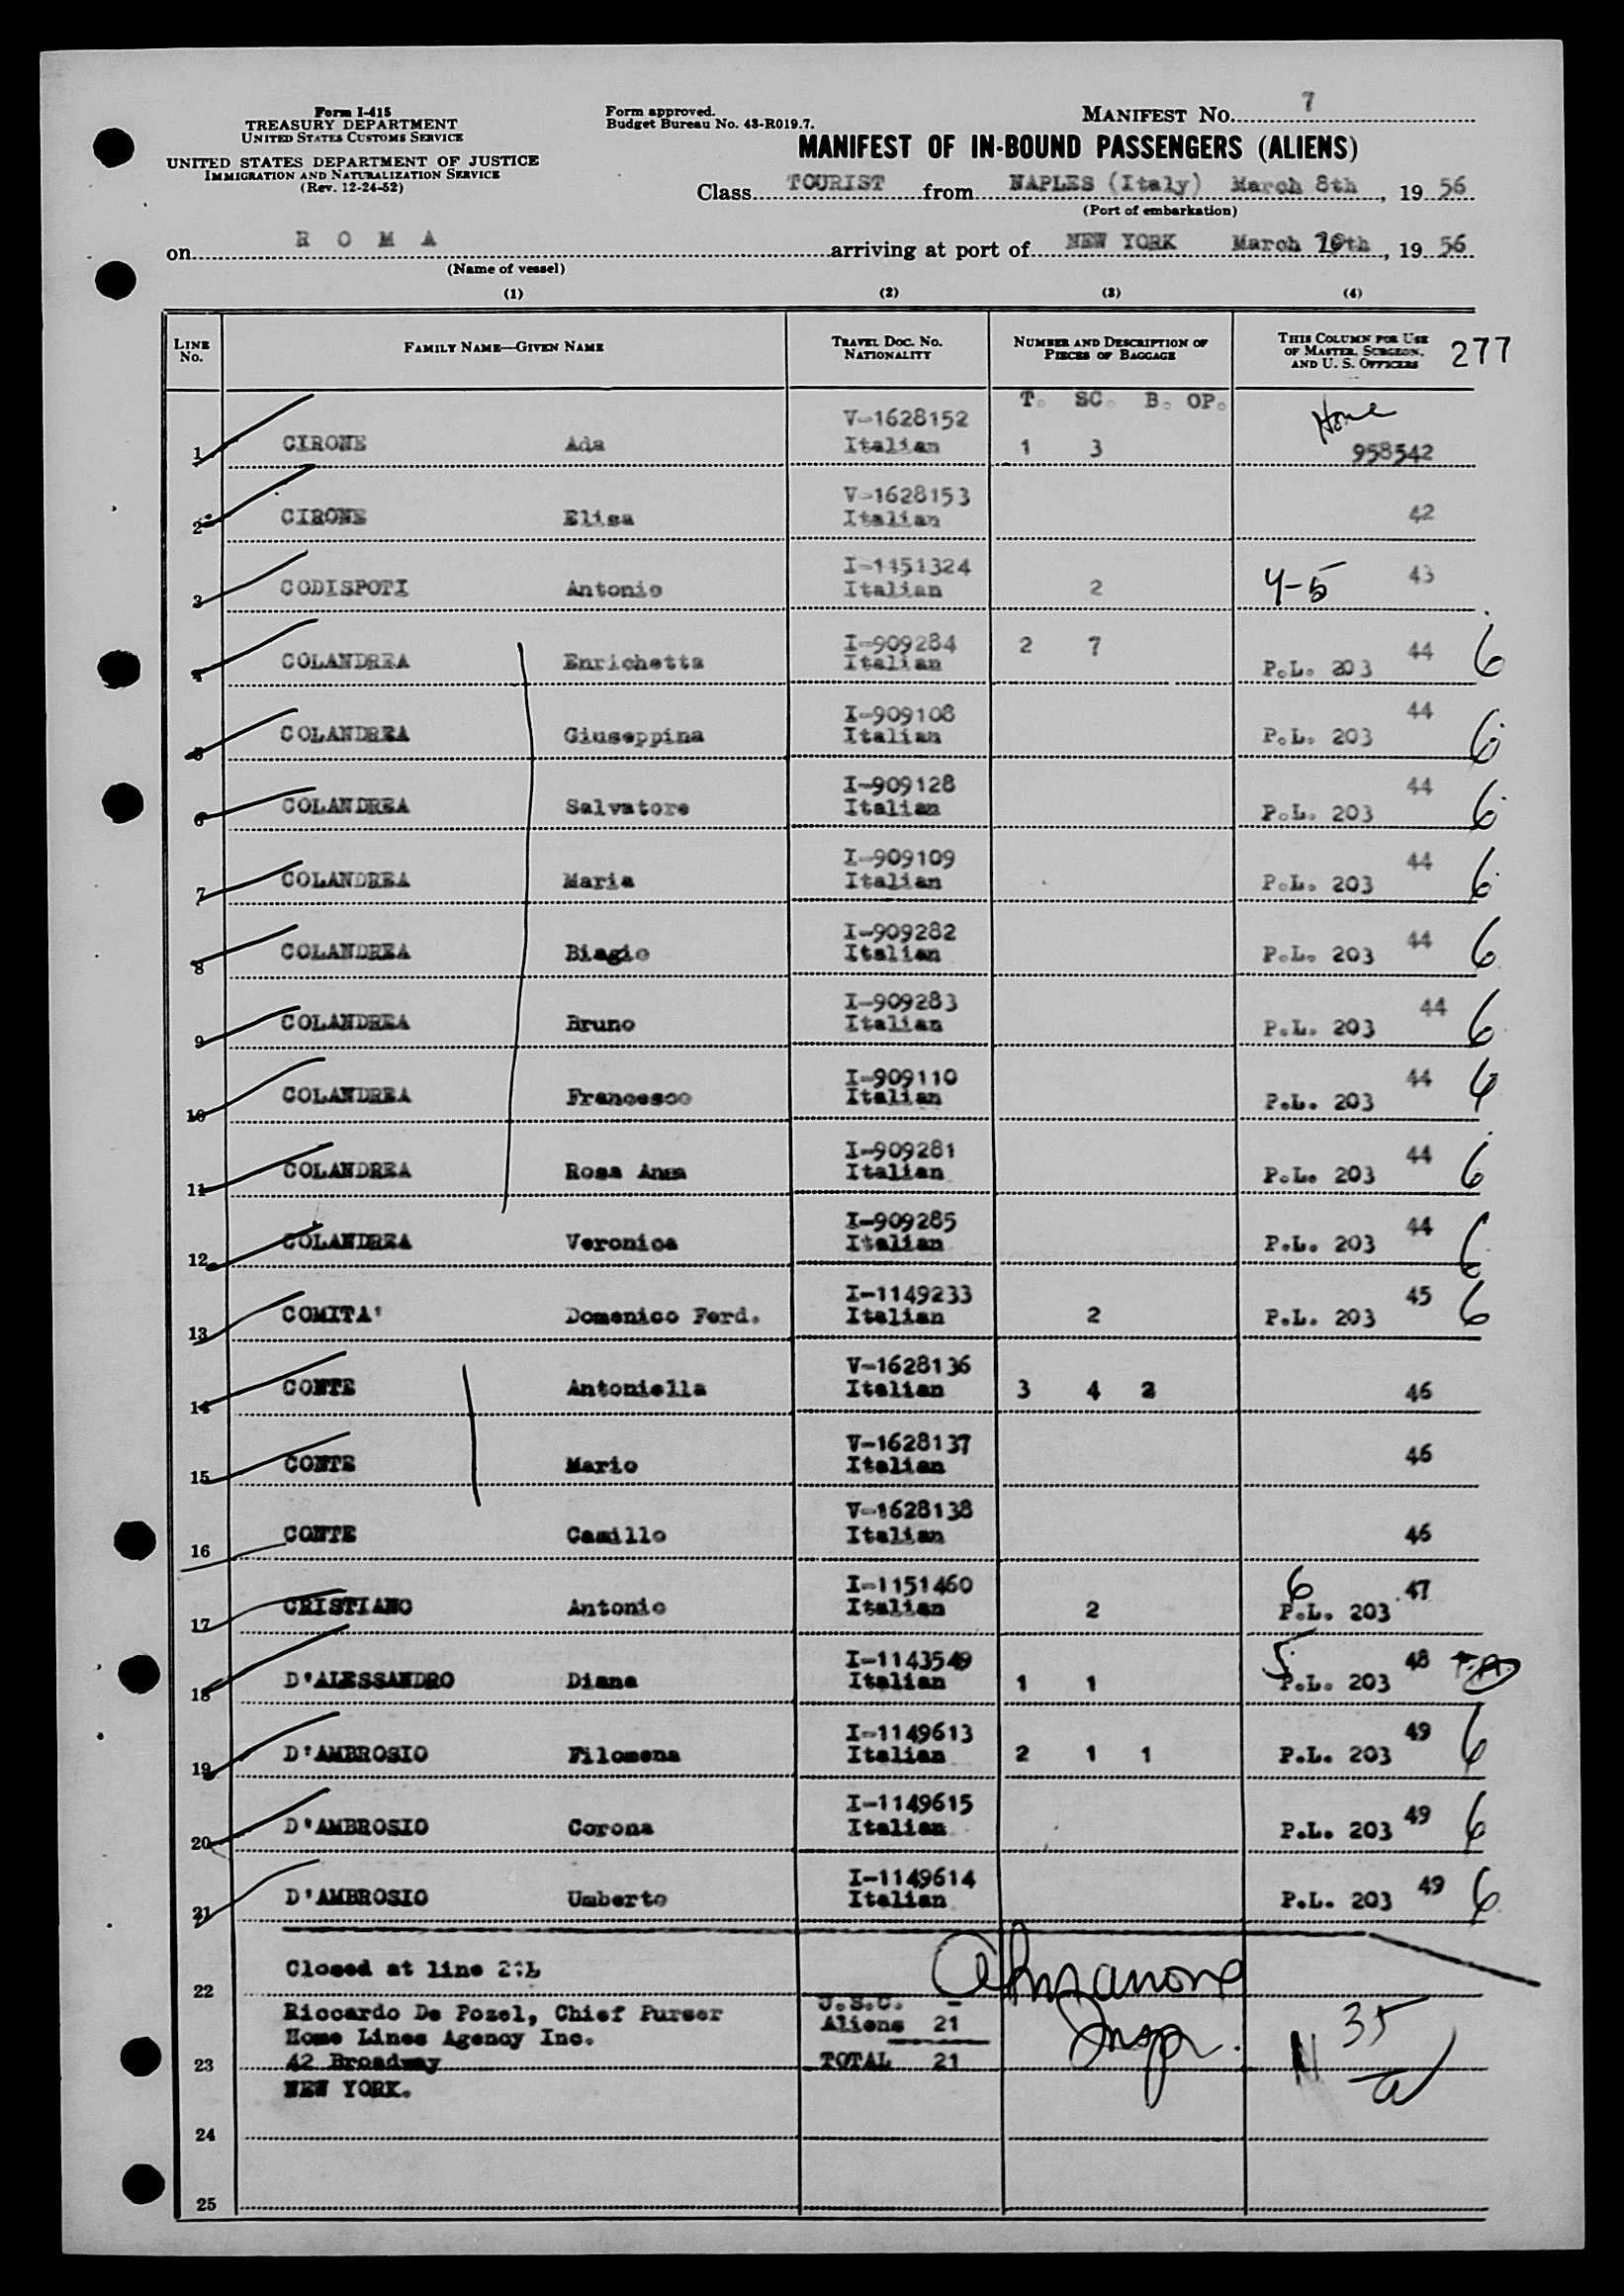 Form I-415
TREASURY DEPARTMENT
UNITED STATES CUSTOMS SERVICE
UNITED STATES DEPARTMENT OF JUSTICE
IMMIGRATION AND NATURALIZATION SERVICE
(Rev. 12-24-52)
Form approved.
Budget Bureau No. 43-R019.7.
MANIFEST NO. 7
MANIFEST OF IN-BOUND PASSENGERS (ALIENS)
Class TOURIST from NAPLES (Italy) March 8th, 19 56
(Port of embarkation)
on R O M A arriving at port of NEW YORK March th, 19 56
(Name of vessel)
(1) (2) (3) (4)
LINE No. FAMILY NAME—GIVEN NAME TRAVEL DOC. NO. NATIONALITY NUMBER AND DESCRIPTION OF PIECES OF BAGGAGE THIS COLUMN FOR USE OF MASTER, SURGEON, AND U. S. OFFICERS 277
T. SC. B. OP.
V-1628152
1 CIRONE Ada Italian 1 3 958542
V-1628153
2 CIRONE Elisa Italian 42
I-1151324
3 CODISPOTI Antonio Italian 2 4-5 43
I-909284
4 COLANDREA Enrichetta Italian 2 7 P.L. 203 44 6
I-909108
5 COLANDREA Giuseppina Italian P.L. 203 44 6
I-909128
6 COLANDREA Salvatore Italian P.L. 203 44 6
I-909109
7 COLANDREA Maria Italian P.L. 203 44 6
I-909282
8 COLANDREA Biagio Italian P.L. 203 44 6
I-909283
9 COLANDREA Bruno Italian P.L. 203 44 6
I-909110
10 COLANDREA Francesco Italian P.L. 203 44 6
I-909281
11 COLANDREA Rosa Anna Italian P.L. 203 44 6
I-909285
12 COLANDREA Veronica Italian P.L. 203 44 6
I-1149233
13 COMITA' Domenico Ferd. Italian 2 P.L. 203 45 6
V-1628136
14 CONTE Antoniella Italian 3 4 2 46
V-1628137
15 CONTE Mario Italian 46
V-1628138
16 CONTE Camillo Italian 46
I-1151460
17 CRISTIANO Antonio Italian 2 6 P.L. 203 47
I-1143549
18 D'ALESSANDRO Diana Italian 1 1 5 P.L. 203 48
I-1149613
19 D'AMBROSIO Filomena Italian 2 1 1 P.L. 203 49 6
I-1149615
20 D'AMBROSIO Corona Italian P.L. 203 49 6
I-1149614
21 D'AMBROSIO Umberto Italian P.L. 203 49 6
Closed at line 21
22
Riccardo De Pozel, Chief Purser U.S.C. -
Home Lines Agency Inc. Aliens 21 Insp. 35
23 42 Broadway TOTAL 21
NEW YORK.
24
25